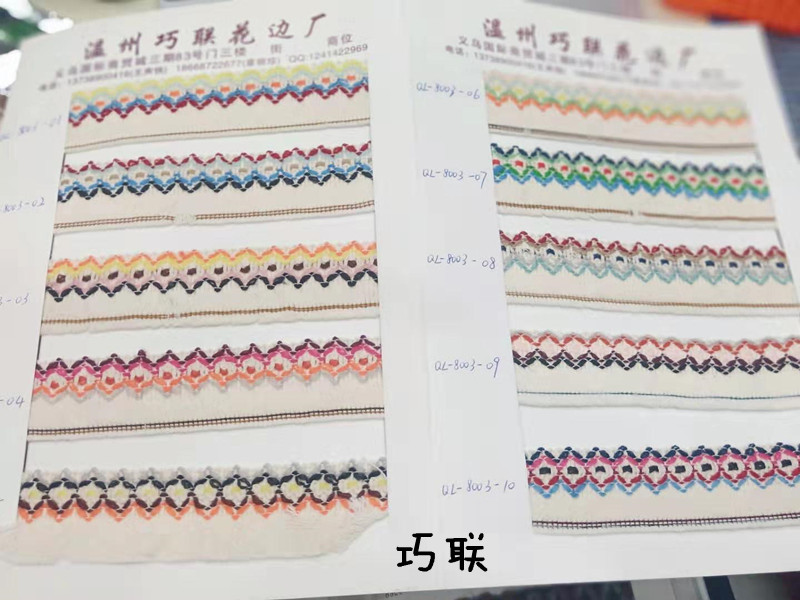 温州巧联花边厂
义乌国际商贸城三期83号门三楼 街 商位
电话：13738900416 18688722677 QQ:1241422969
8003-02
-03
-04
温州巧联花边厂
义乌国际商贸城三期83号门三楼
QL-8003-06
QL-8003-07
QL-8003-08
QL-8003-09
QL-8003-10
巧联